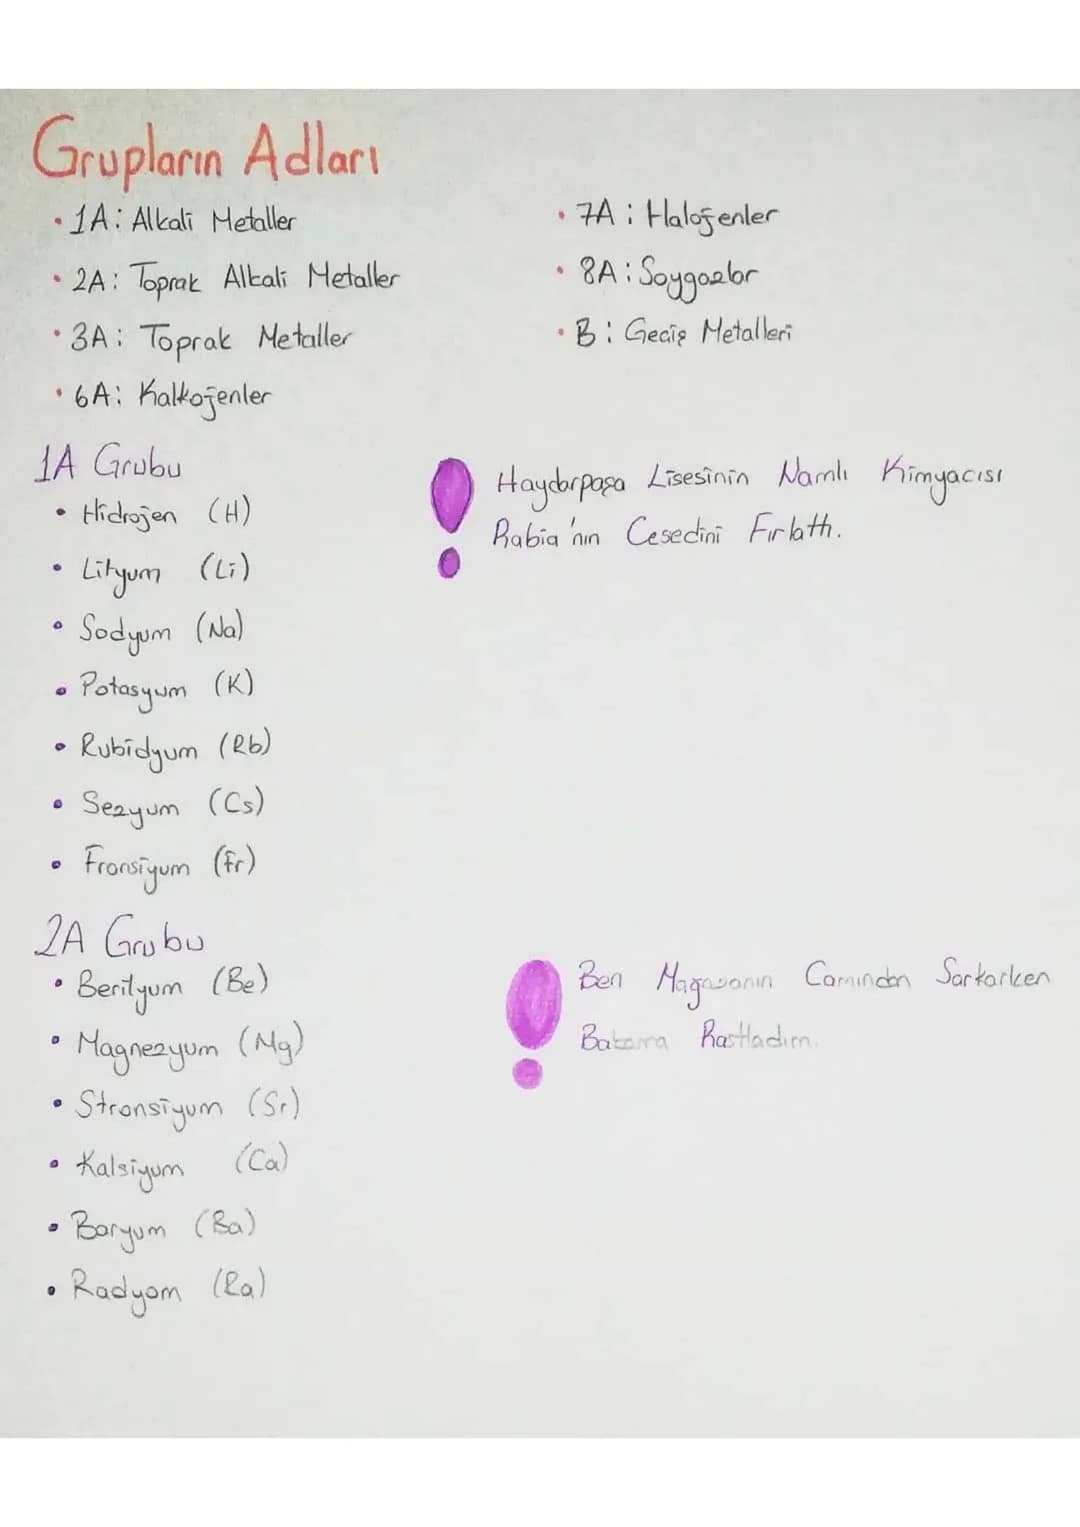 Grupların Adları
• 1A: Alkali Metaller
• 2A: Toprak Alkali Metaller
• 3A: Toprak Metaller
• 6A: Kalkojenler
• 7A: Halojenler
• 8A: Soygazlar
• B: Geçiş Metalleri
1A Grubu
• Hidrojen (H)
• Lityum (Li)
• Sodyum (Na)
• Potasyum (K)
• Rubidyum (Rb)
• Sezyum (Cs)
• Fransiyum (Fr)
Haydarpaşa Lisesinin Namlı Kimyacısı
Rabia'nın Cesedini Fırlattı.
2A Grubu
• Berilyum (Be)
• Magnezyum (Mg)
• Stronsiyum (Sr)
• Kalsiyum (Ca)
• Baryum (Ba)
• Radyom (Ra)
Ben Magazanın Camından Sarkarken
Babama Rastladım.